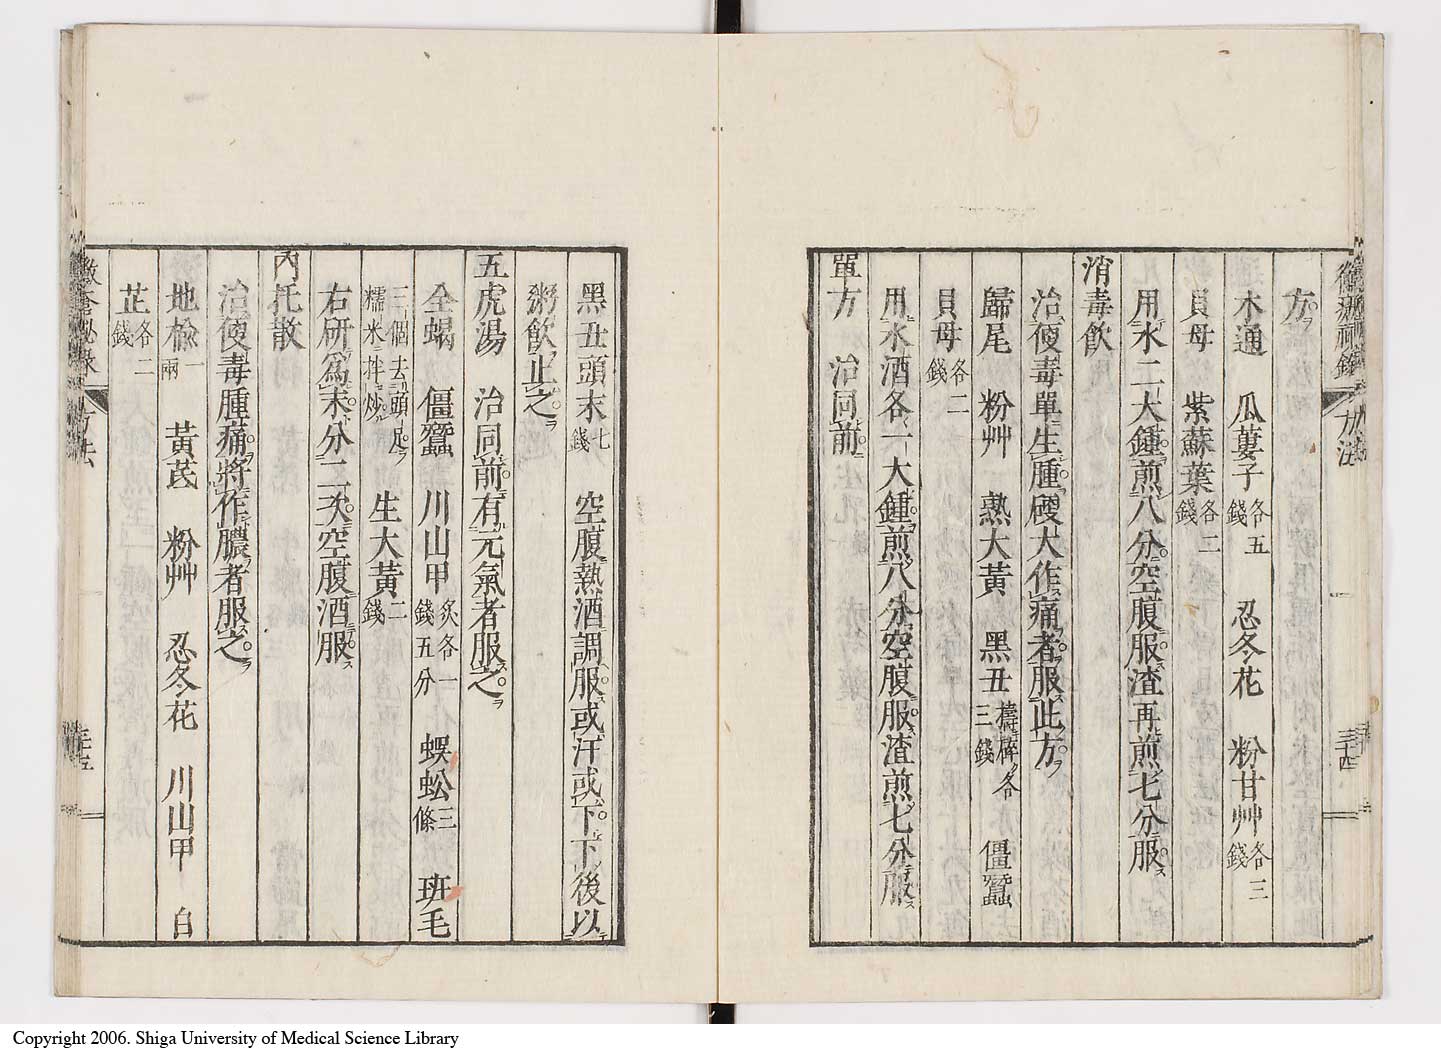 方
木通 瓜蔞子各五錢 忍冬花 粉甘艸各三錢
貝母 紫蘇葉各二錢
用水二大鍾煎八分空腹服渣再煎七分服
消毒飲
治便毒單生腫硬大作痛者服此方
歸尾 粉艸 熟大黃 黑丑擣碎各三錢 僵蠶
貝母各二錢
用水酒各一大鍾煎八分空腹服渣煎七分服
單方 治同前
黑丑頭末七錢 空腹熱酒調服或汗或下下後以
粥飲止之
五虎湯 治同前有元氣者服之
全蝎 僵蠶 川山甲炙各一錢五分 蜈蚣三條 班毛
三個去頭足糯米拌炒 生大黃二錢
右研爲末分二次空腹酒服
內托散
治便毒腫痛將作膿者服之
地榆一兩 黃芪 粉艸 忍冬花 川山甲 白
芷各二錢
黴瘡秘錄 方法 三十五
Copyright 2006. Shiga University of Medical Science Library